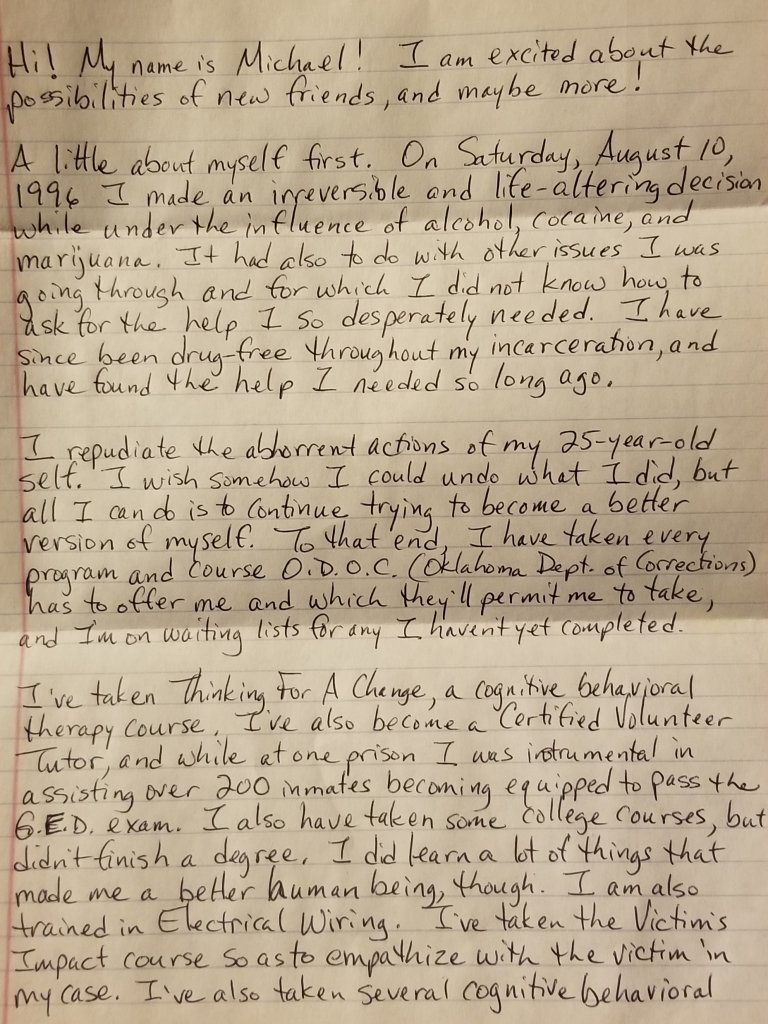 Hi! My name is Michael! I am excited about the
possibilities of new friends, and maybe more!
A little about myself first. On Saturday, August 10,
1996 I made an irreversible and life-altering decision
while under the influence of alcohol, cocaine, and
marijuana. It had also to do with other issues I was
going through and for which I did not know how to
ask for the help I so desperately needed. I have
since been drug-free throughout my incarceration, and
have found the help I needed so long ago.
I repudiate the abhorrent actions of my 25-year-old
self. I wish somehow I could undo what I did, but
all I can do is to continue trying to become a better
version of myself. To that end, I have taken every
program and course O.D.O.C. (Oklahoma Dept. of Corrections)
has to offer me and which they'll permit me to take,
and I'm on waiting lists for any I haven't yet completed.
I've taken Thinking For A Change, a cognitive behavioral
therapy course. I've also become a Certified Volunteer
Tutor, and while at one prison I was instrumental in
assisting over 200 inmates becoming equipped to pass the
G.E.D. exam. I also have taken some college courses, but
didn't finish a degree. I did learn a lot of things that
made me a better human being, though. I am also
trained in Electrical Wiring. I've taken the Victim's
Impact course so as to empathize with the victim in
my case. I've also taken several cognitive behavioral